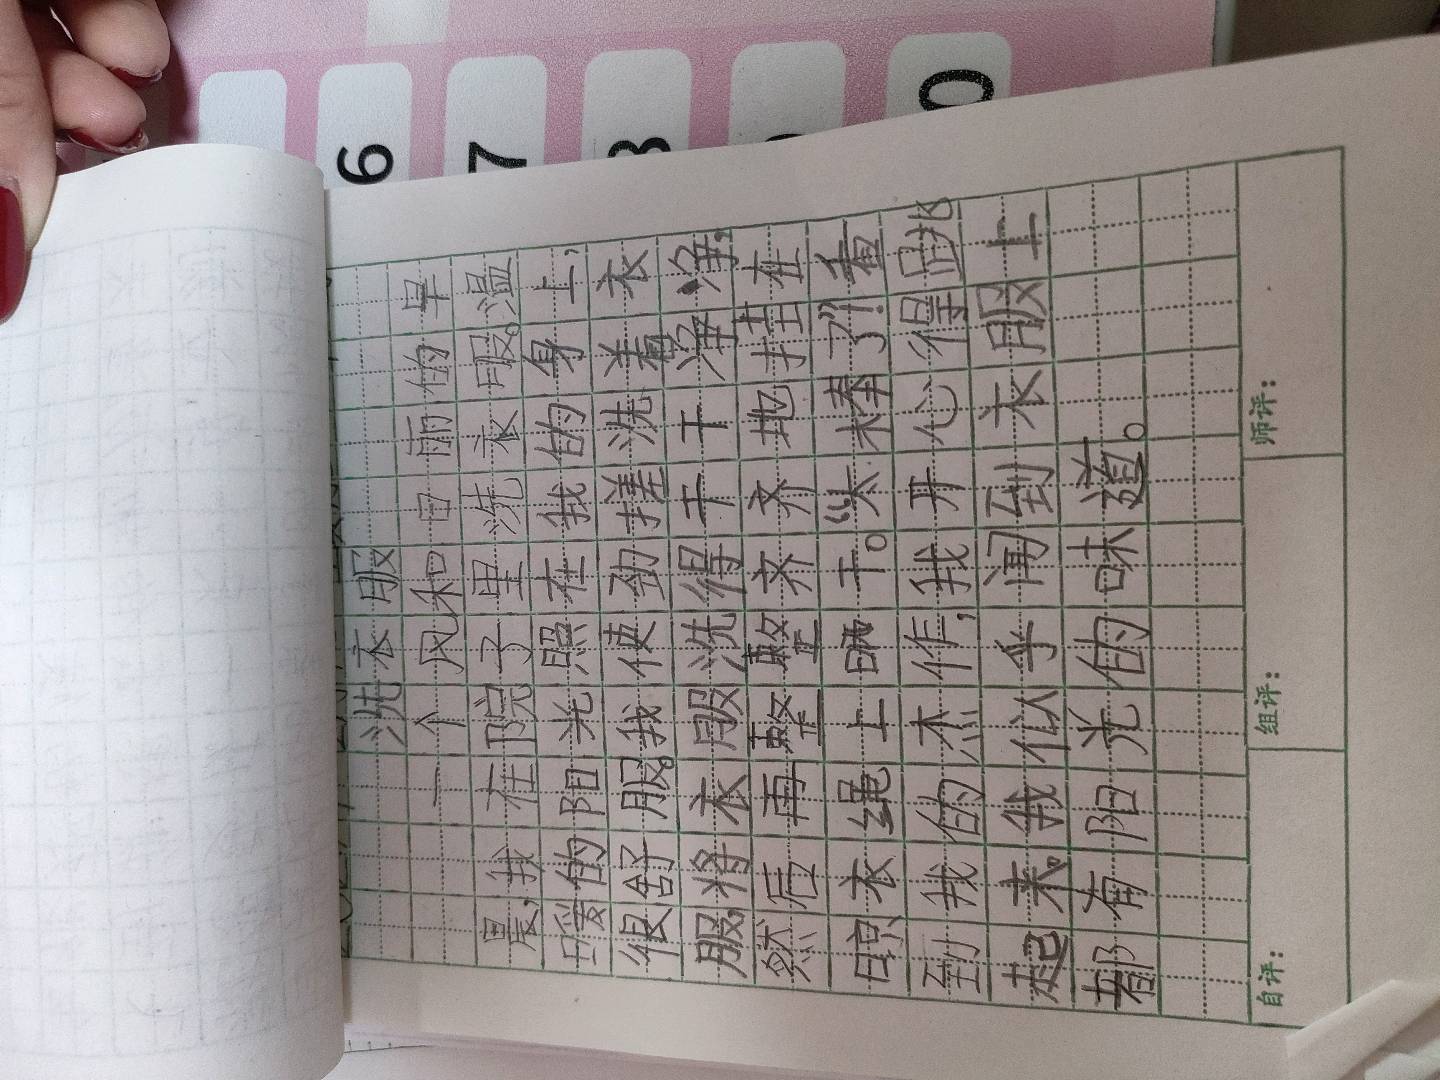 洗衣服
一个风和日丽的早
晨,我在院子里洗衣服。温
暖的阳光照在我的身上,
很舒服。我使劲搓洗着衣
服,将衣服洗得干干净净,
然后再整整齐齐地挂在
晾衣绳上晒干。“太棒了!”看
到我的杰作,我开心得跳
起来。我似乎闻到衣服上
都有阳光的味道。
自评: 组评: 师评:
6
7
8
0